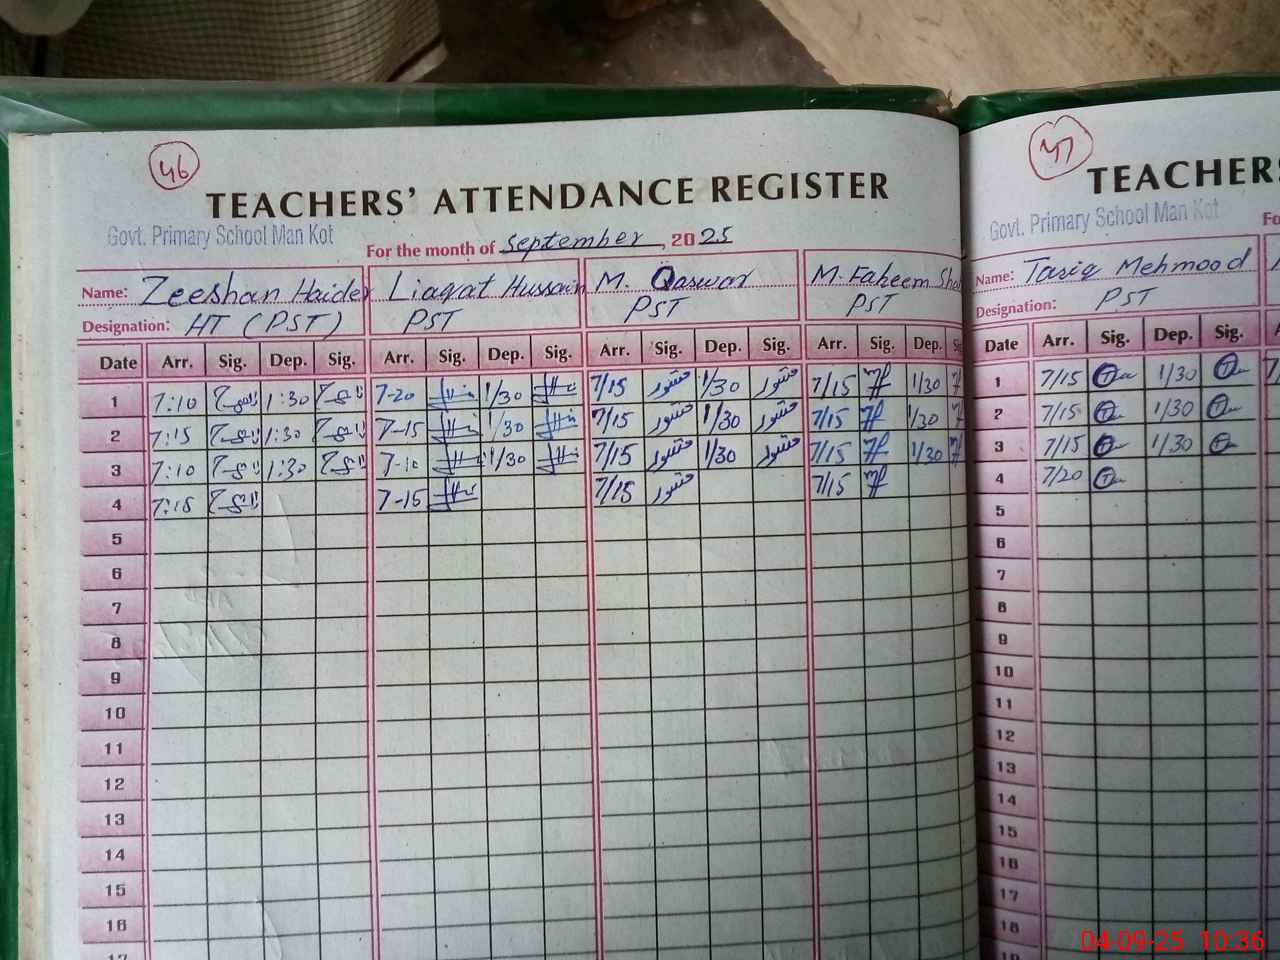 46
TEACHERS' ATTENDANCE REGISTER
Govt. Primary School Man Kot
For the month of September, 2025
Name: Zeeshan Haider Liaqat Hussain M. Qaswar M. Faheem
Designation: HT (PST) PST PST PST
Date Arr. Sig. Dep. Sig. Arr. Sig. Dep. Sig. Arr. Sig. Dep. Sig. Arr. Sig. Dep.
1 7:10 1:30 7-20 1/30 7/15 1/30 7/15 1/30
2 7:15 1:30 7-15 1/30 7/15 1/30 7/15 1/30
3 7:10 1:30 7-10 1/30 7/15 1/30 7/15 1/30
4 7:15 7-15 7/15 7/15
5
6
7
8
9
10
11
12
13
14
15
16
47
TEACHERS
Govt. Primary School Man Kot
Name: Tariq Mehmood
Designation: PST
Date Arr. Sig. Dep. Sig.
1 7/15 1/30
2 7/15 1/30
3 7/15 1/30
4 7/20
5
6
7
8
9
10
11
12
13
14
15
16
17
18
04-09-25 10:36